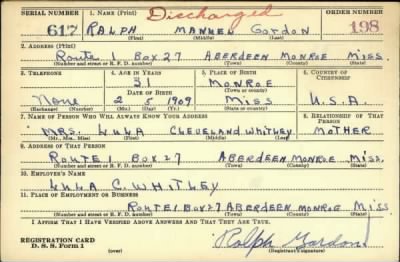 SERIAL NUMBER 1. NAME (Print) Discharged ORDER NUMBER
617 RALPH MANUEL Gordon 198
(First) (Middle) (Last)
2. ADDRESS (Print)
Route 1 Box 27 Aberdeen Monroe Miss.
(Number and street or R. F. D. number) (Town) (County) (State)
3. TELEPHONE 4. AGE IN YEARS 5. PLACE OF BIRTH 6. COUNTRY OF CITIZENSHIP
31 Monroe
(Town or county)
DATE OF BIRTH
None 2 5 1909 Miss U.S.A.
(Exchange) (Number) (Mo.) (Day) (Yr.) (State or country)
7. NAME OF PERSON WHO WILL ALWAYS KNOW YOUR ADDRESS 8. RELATIONSHIP OF THAT PERSON
MRS. LULA CLEVELAND WHITLEY MOTHER
(Mr., Mrs., Miss) (First) (Middle) (Last)
9. ADDRESS OF THAT PERSON
ROUTE 1 BOX 27 ABERDEEN MONROE MISS.
(Number and street or R. F. D. number) (Town) (County) (State)
10. EMPLOYER'S NAME
LULA C. WHITLEY
11. PLACE OF EMPLOYMENT OR BUSINESS
ROUTE 1 BOX 27 ABERDEEN MONROE MISS
(Number and street or R. F. D. number) (Town) (County) (State)
I AFFIRM THAT I HAVE VERIFIED ABOVE ANSWERS AND THAT THEY ARE TRUE.
REGISTRATION CARD
D. S. S. Form 1 (over) Ralph Gordon
(Registrant's signature)